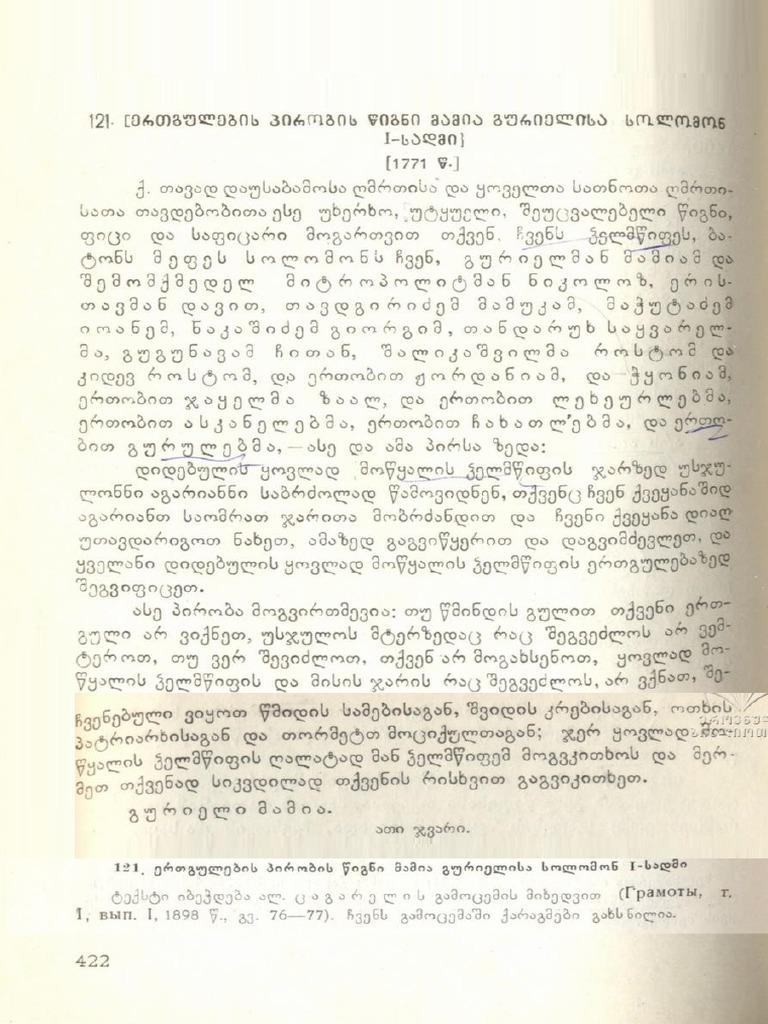 121. [ერთგულების პირობის წიგნი მამია გურიელისა სოლომონ
I-სადმი]
[1771 წ.]
ქ. თავად დაუსაბამოსა ღმრთისა და ყოველთა სათნოთა ღმრთი-
სათა თავდებობითა ესე უხერხო, უტყუელი, შეუცვალებელი წიგნი,
ფიცი და საფიცარი მოგართვით თქვენ, ჩვენს ჴელმწიფეს, ბა-
ტონს მეფეს სოლომონს ჩვენ, გურიელმან მამიამ და
შემომქმედელ მიტროპოლიტმან ნიკოლოზ, ერის-
თავმან დავით, თავდგირიძემ მამუკამ, მაჭუტაძემ
იოანემ, ნაკაშიძემ გიორგიმ, თანდარუხ საყვარელ-
მა, გუგუნავამ ჩითან, შალიკაშვილმა როსტომ და
კიდევ როსტომ, და ერთობით ჟორდანიამ, და ჭყონიამ,
ერთობით ჯაყელმა ზაალ, და ერთობით ლეხეურლებმა,
ერთობით ასკანელებმა, ერთობით ჩახათლებმა, და ერთო-
ბით გურულებმა, — ასე და ამა პირსა ზედა:
დიდებულის ყოვლად მოწყალის ჴელმწიფის ჯარზედ უსჯუ-
ლონნი აგარიანნი საბრძოლად წამოვიდნენ, თქვენც ჩვენ ქვეყანაშიდ
აგარიანთ საომრათ ჯარითა მობრძანდით და ჩვენი ქვეყანა დიაღ
უთავდარიგოთ ნახეთ, ამაზედ გაგვიწყერით და დაგვიმძევლეთ, და
ყველანი დიდებულის ყოვლად მოწყალის ჴელმწიფის ერთგულებაზედ
შეგვიფიცეთ.
ასე პირობა მოგვირთმევია: თუ წმინდის გულით თქვენი ერთ-
გული არ ვიქნეთ, უსჯულოს მტერზედაც რაც შეგვეძლოს არ ვემ-
ტეროთ, თუ ვერ შევიძლოთ, თქვენ არ მოგახსენოთ, ყოვლად მო-
წყალის ჴელმწიფის და მისის ჯარის რაც შეგვეძლოს, არ ვქნათ, შე-
ჩვენებული ვიყოთ წმიდის სამებისაგან, შვიდის კრებისაგან, ოთხის
პატრიარხისაგან და თორმეტთ მოციქულთაგან; ჯერ ყოვლად მო-
წყალის ჴელმწიფის ღალატად მან ჴელმწიფემ მოგვკითხოს და მერ-
მეთ თქვენად სიკვდილად თქვენის რისხვით გაგვიკითხეთ.
გურიელი მამია.
ათი ჯვარი.
121. ერთგულების პირობის წიგნი მამია გურიელისა სოლომონ I-სადმი
ტექსტი იბეჭდება ალ. ცაგარელის გამოცემის მიხედვით (Грамоты, т.
I, вып. I, 1898 წ., გვ. 76—77). ჩვენს გამოცემაში ქარაგმები გახსნილია.
422